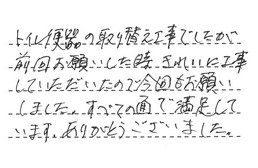 トイレ便器の取り替え工事でしたが
前回お願いした時きれいに工事
していただいたので今回もお願い
しました。すべての面で満足して
います。ありがとうございました。